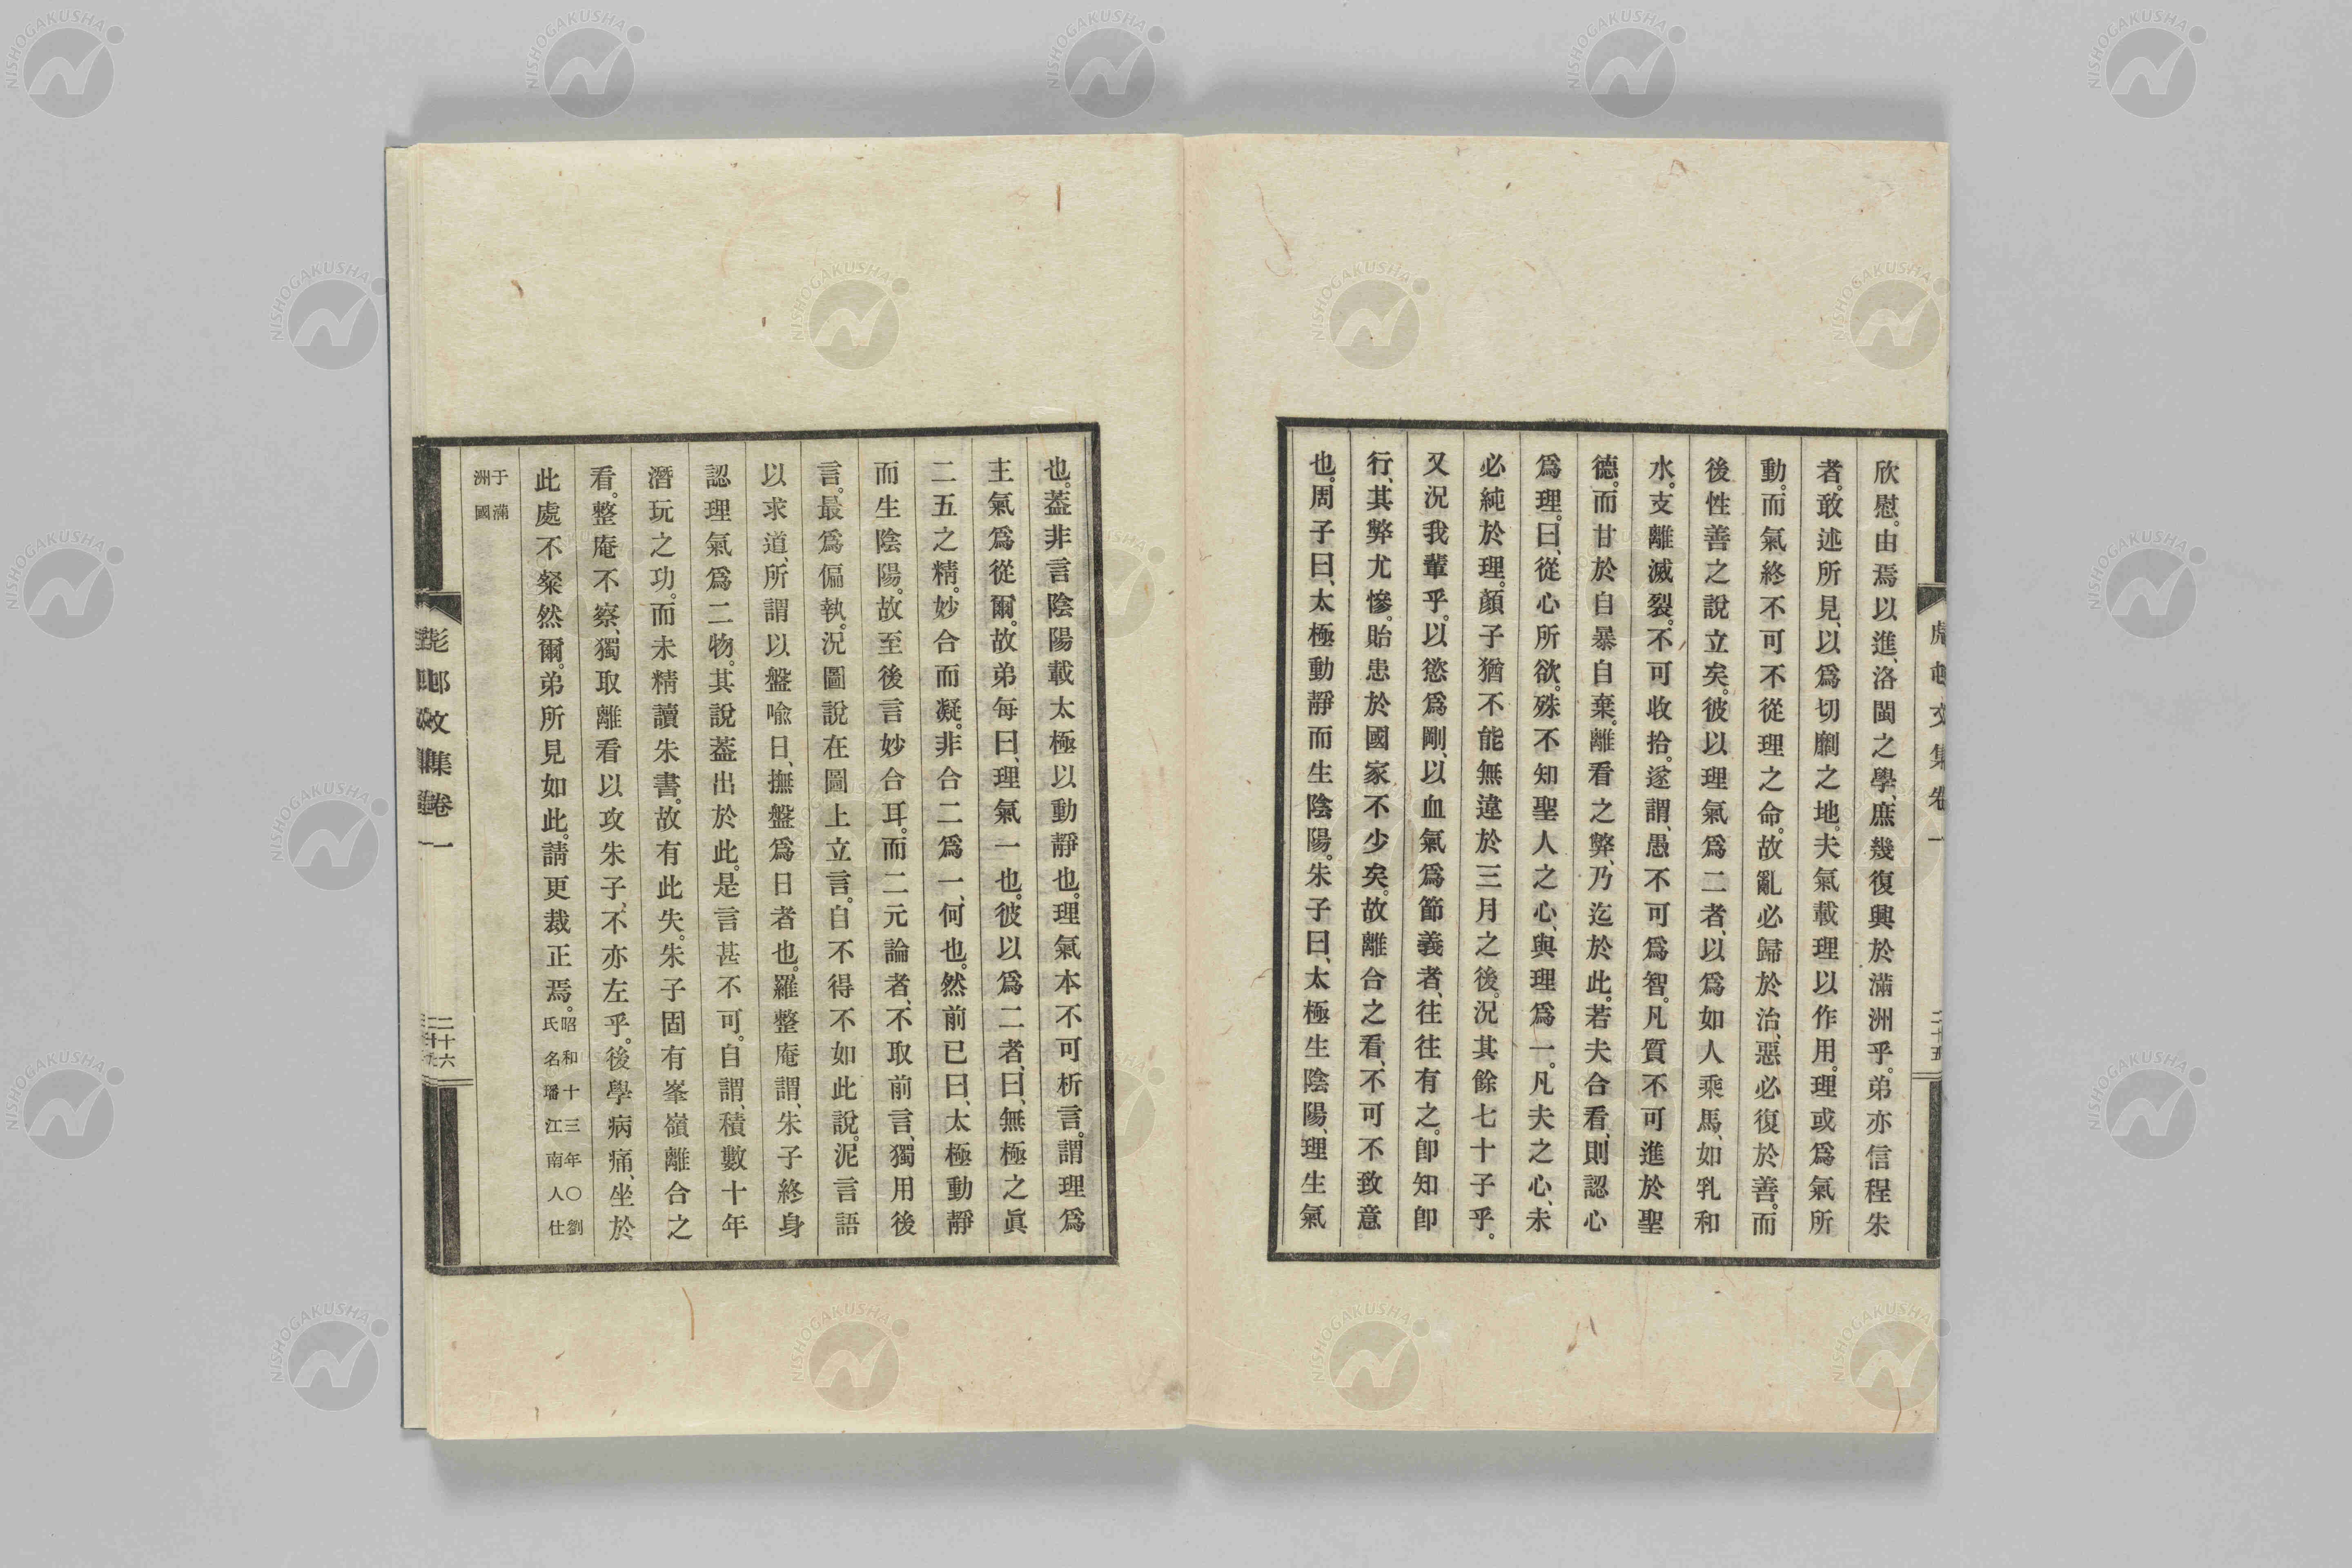 欣慰。由焉以進、洛閩之學、庶幾復興於滿洲乎。弟亦信程朱
者。敢述所見、以爲切劘之地。夫氣載理以作用。理或爲氣所
動。而氣終不可不從理之命。故亂必歸於治、惡必復於善。而
後性善之說立矣。彼以理氣爲二者、以爲如人乘馬、如乳和
水。支離滅裂。不可收拾。遂謂、愚不可爲智。凡質不可進於聖
德。而甘於自暴自棄。離看之弊、乃迄於此。若夫合看、則認心
爲理。曰、從心所欲。殊不知聖人之心、與理爲一。凡夫之心、未
必純於理。顏子猶不能無違於三月之後。況其餘七十子乎。
又況我輩乎。以慾爲剛、以血氣爲節義者、往往有之。卽知卽
行、其弊尤慘。貽患於國家不少矣。故離合之看、不可不致意
也。周子曰、太極動靜而生陰陽。朱子曰、太極生陰陽、理生氣
也。蓋非言陰陽載太極以動靜也。理氣本不可析言。謂理爲
主氣爲從爾。故弟每曰、理氣一也。彼以爲二者、曰、無極之眞
二五之精。妙合而凝。非合二爲一、何也。然前已曰、太極動靜
而生陰陽。故至後言妙合耳。而二元論者、不取前言、獨用後
言。最爲偏執。況圖說在圖上立言。自不得不如此說。泥言語
以求道、所謂以盤喩日、撫盤爲日者也。羅整庵謂、朱子終身
認理氣爲二物。其說蓋出於此。是言甚不可。自謂、積數十年
潛玩之功。而未精讀朱書。故有此失。朱子固有峯嶺離合之
看。整庵不察、獨取離看以攻朱子、不亦左乎。後學病痛、坐於
此處不粲然爾。弟所見如此。請更裁正焉。昭和十三年〇劉
氏名璠江南人仕
于滿
洲國
文集卷一
二十五
邨文集卷一
二十六
NISHOGAKUSHA